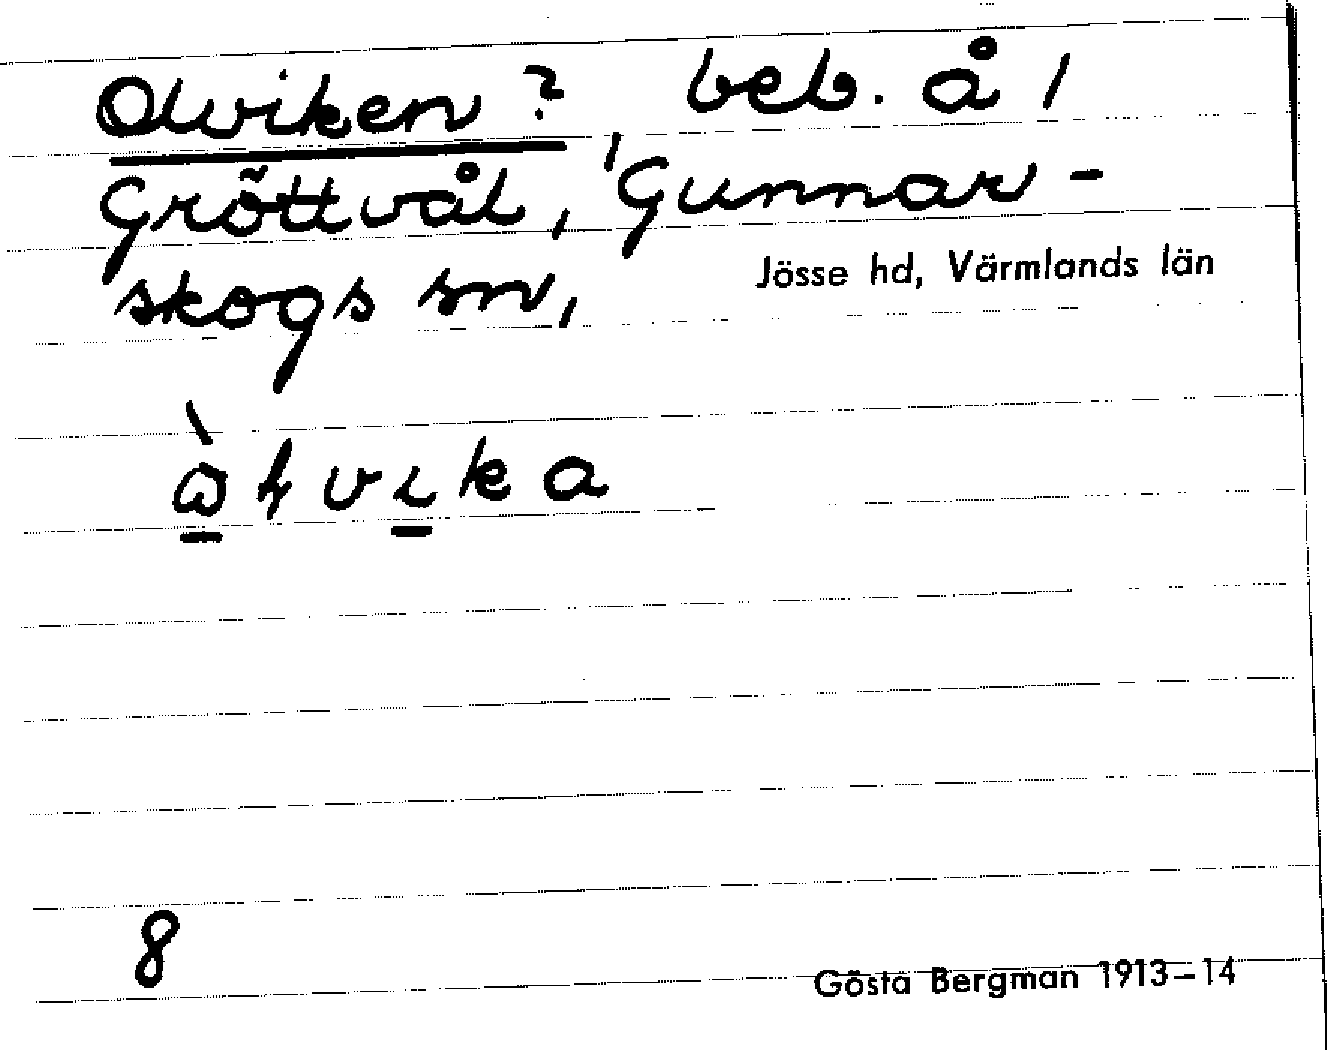 Olviken?, beb. å 1
Gröttvål, Gunnar-
skogs sn,
Jösse hd, Värmlands län
8
Gösta Bergman 1913–14